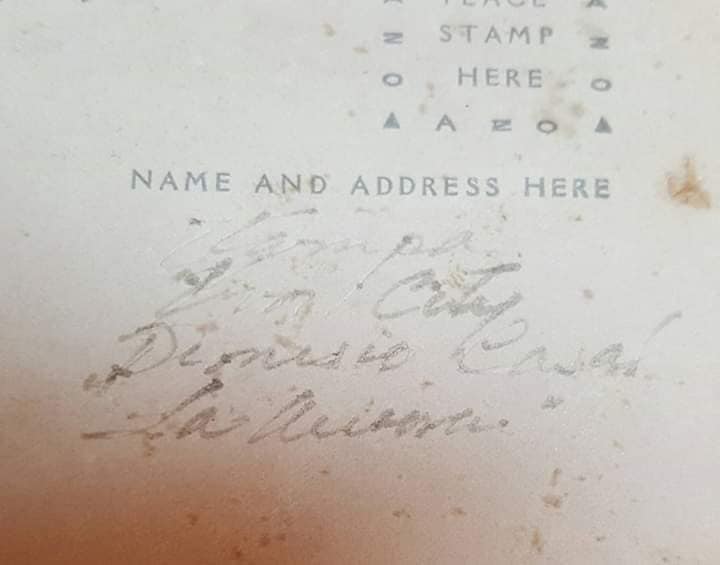 PLACE
STAMP
HERE
AZO
NAME AND ADDRESS HERE
Tampa
Ybor City
Dionisio Casal
"La